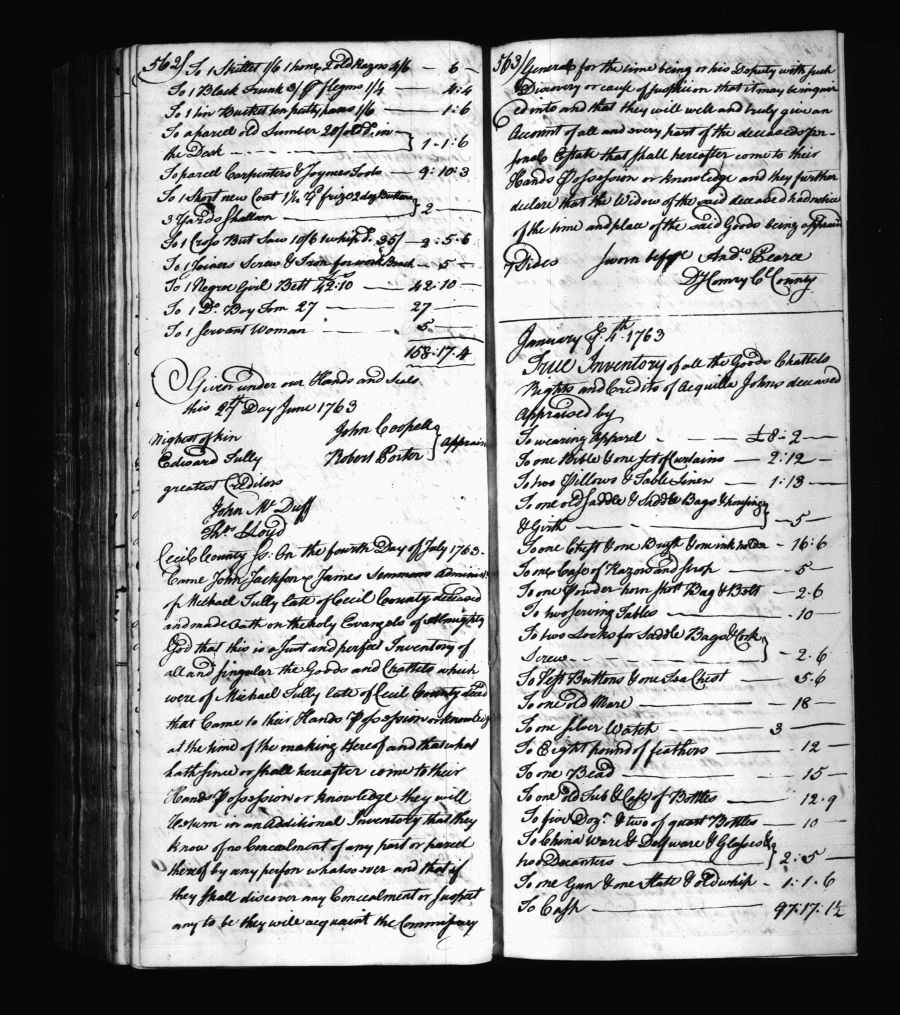 562/ To 1 Skillet 1/6 1 hone 2 old Razors 4/6 — 6 —
To 1 Black Trunk 3/ pr flegms 1/4 — 4:4
To 1 tin Bucket ten petty pans 1/6 — 1:6
To a parcel old Lumber 20/ old in
the Desk — 1-1:6
To parcel Carpenters & Joyners Tools — 9:10:3
To 1 Short new Coat 1½ Yd frize 2 doz Buttons
3 Yards Shalloon — 2 —
To 1 Cross Cut Saw 10/6 1 whip Do 35/ — 2:5:6
To 1 Joiners Screw & Iron for work Bench — 5 —
To 1 Negroe Girl Bett 42:10 — 42:10 —
To 1 Do Boy Tom 27 — 27 —
To 1 Servant Woman — 5
158:17:4
Given under our Hands and Seals
this 27th Day June 1763
Nighest of kin John Cooper
Edward Tully Robert Porter } Apprais
greatest Creditors
John Mc Duff
Thos Lloyd
Cecil County Ss: On the fourth Day of July 1763 -
Came John Jackson & James Simmons Adminis
of Michael Tully late of Cecil County deceased
and made Oath on the holy Evangels of Almighty
God that this is a Just and perfect Inventory of
all and singular the Goods and Chattels which
were of Michael Tully late of Cecil County decd
that Came to their Hands Possession or knowledge
at the time of the making Hereof and that what
hath since or shall hereafter come to their
Hands Possession or knowledge they will
Return in an Additional Inventory that they
know of no Concealment of any part or parcel
thereof by any person whatsoever and that if
they shall discover any Concealment or suspect
any to be they will acquaint the Commissary
563/ General for the time being or his Deputy with such
Discovery or cause of suspicion that it may be inquir
ed into and that they will well and truly give an
Account of all and every part of the deceaseds Per-
sonal Estate that shall hereafter come to their
Hands Possession or knowledge and they further
declare that the Widow of the said deceased had notice
of the time and place of the said Goods being apprais
7 Sides Sworn before Andw Pearce
DyComry C County
January ye 4th 1763
True Inventory of all the Goods Chattels
Rights and Credits of Acquilla Johns deceased
Appraised by
To wearing Apparel — £8:2 —
To one Bible & one Set of Curtains — 2:12 —
To two Pillows & Table Linen — 1:18 —
To one old Saddle & Saddle Bags & housing
& Girth — 5 —
To one Chest & one Brush & one ink holder — 16:6
To one Case of Razors and strop — 5 —
To one Powder horn shot Bag & Belt — 2.6
To two serving Tables — 10 —
To two Locks for Saddle Bags & Cork
Screw — 2.6
To Vest Buttons & one Tea Chest — 5.6
To one old Mare — 18 —
To one silver Watch 3 —
To Eight pound of feathers — 12 —
To one Bead — 15 —
To one old Tub & Case of Bottles — 12.9
To five Dozn & two of quart Bottles — 10 —
To China Ware & Delfware & Glasses &
two Decanters — 2:5 —
To one Gun & one Slate & old whip — 1:1.6
To Cash — 97:17:1½